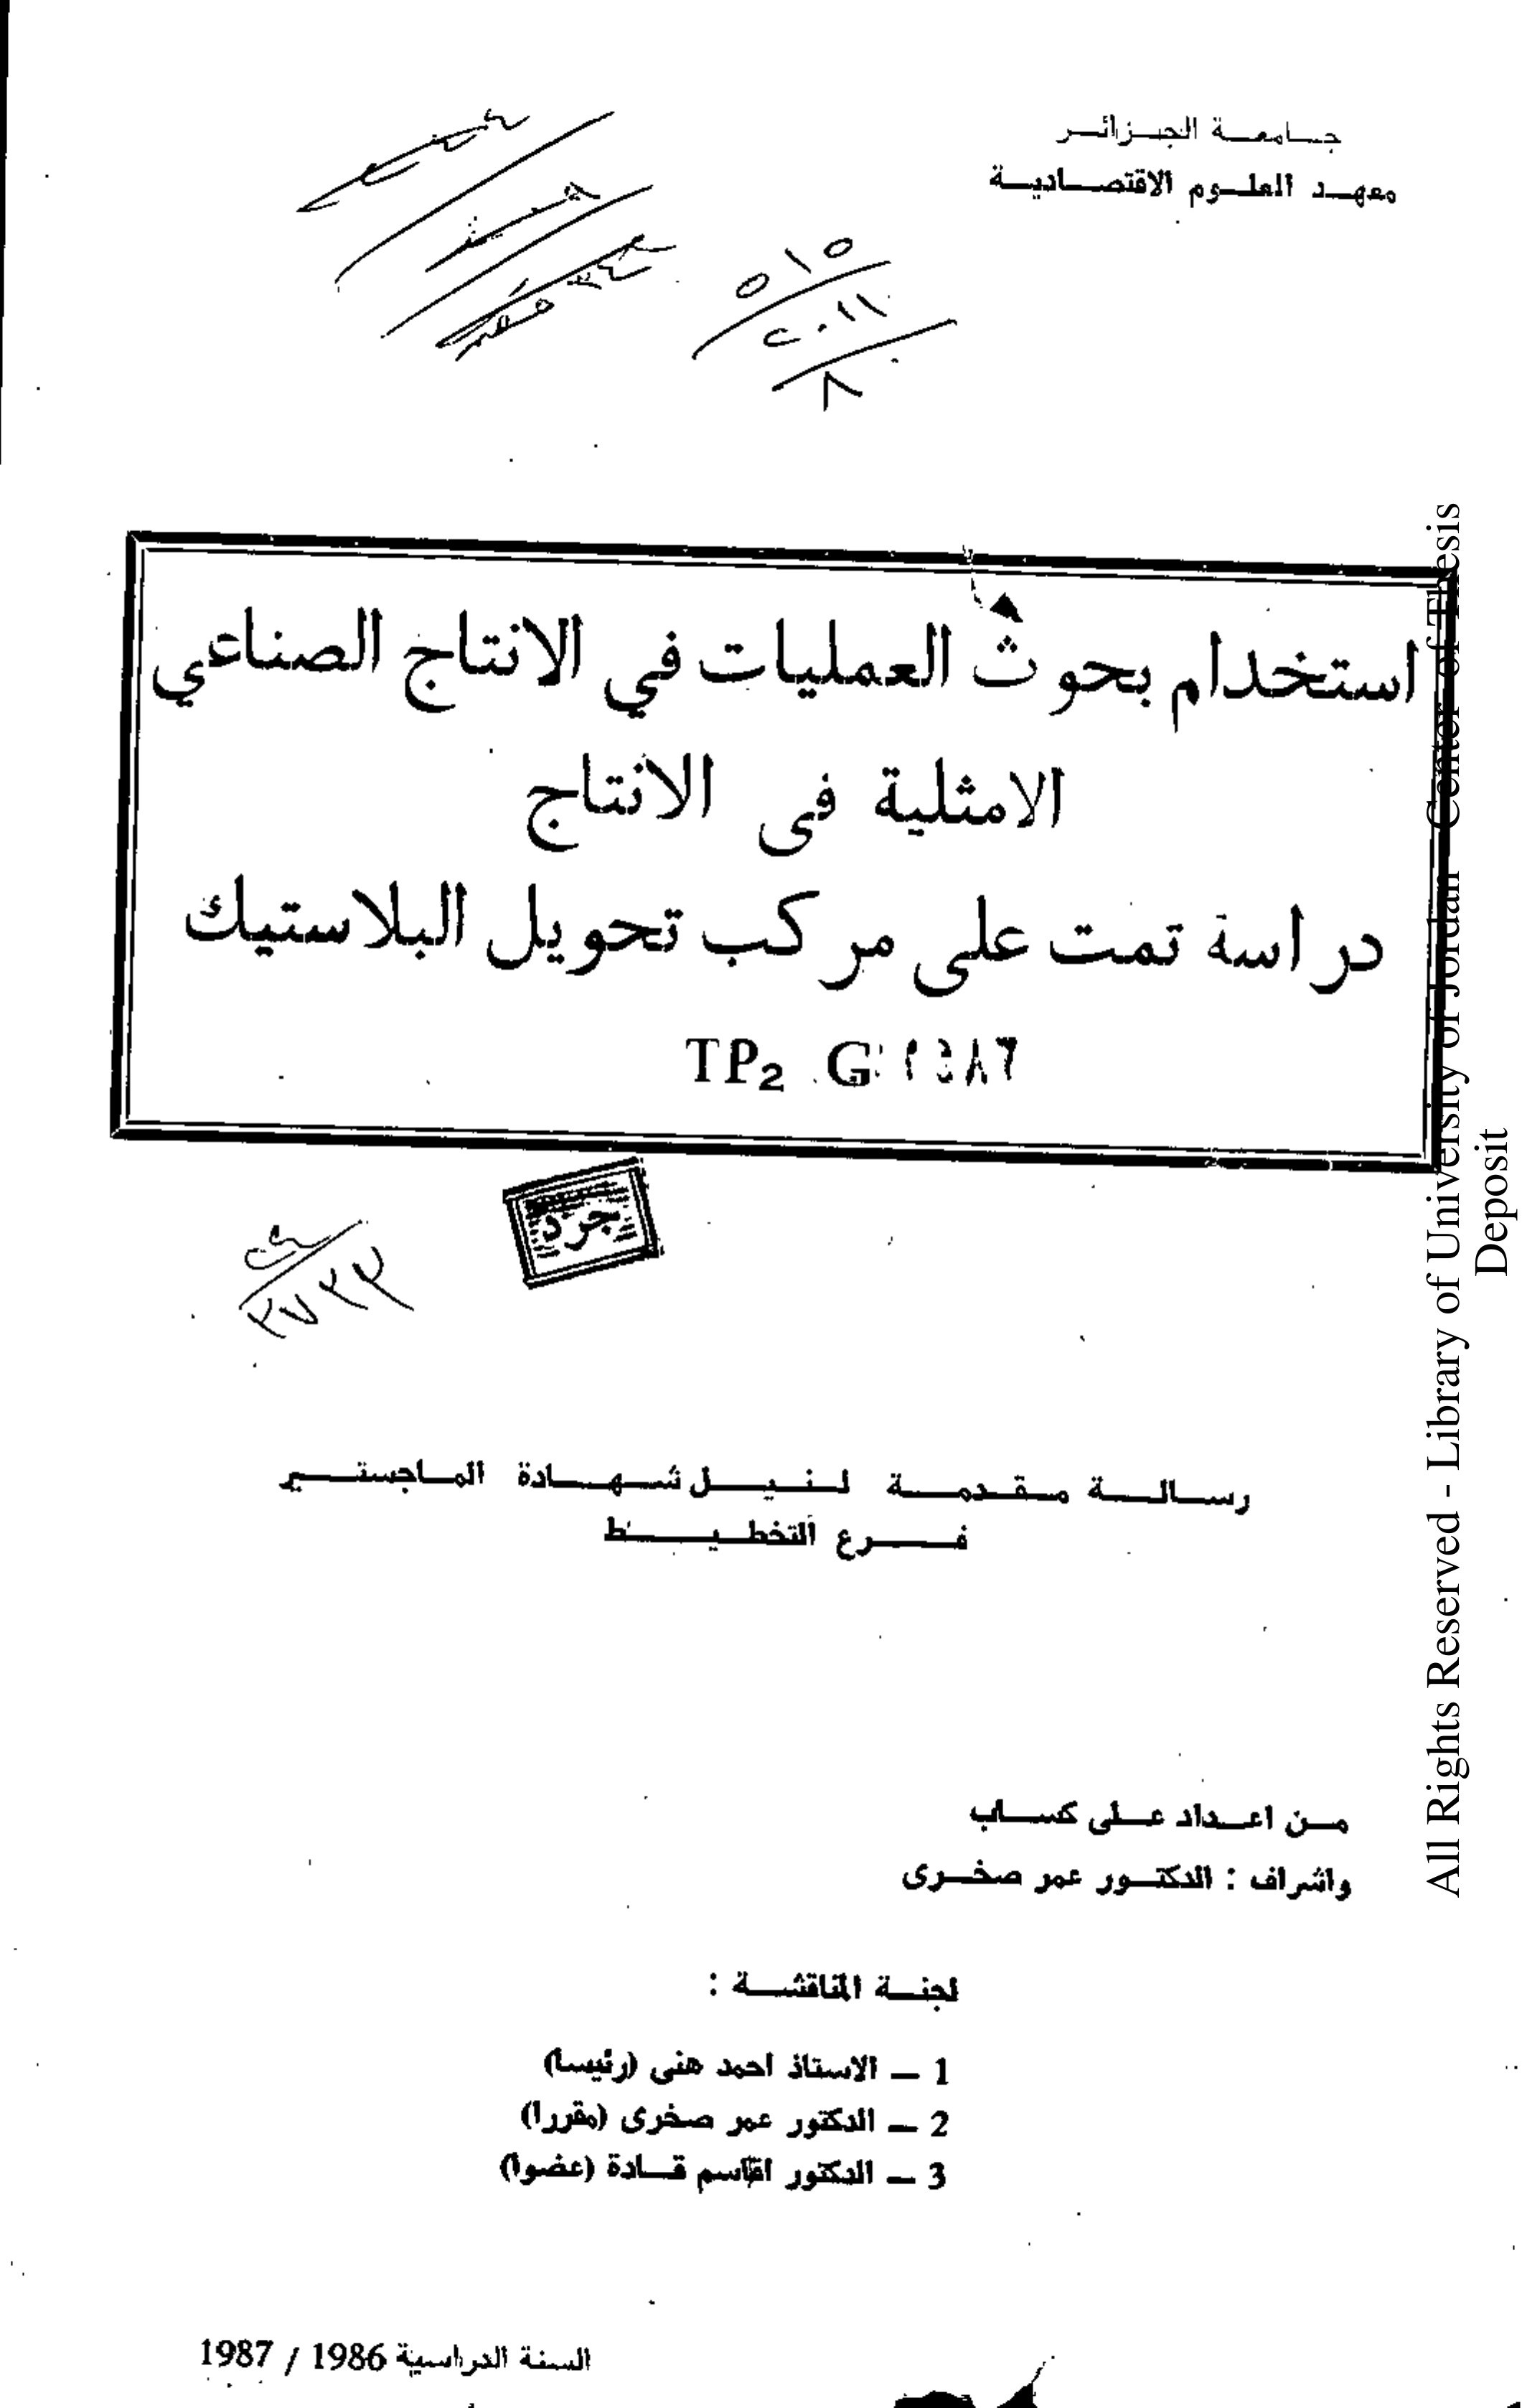 جامعة الجزائر
معهد العلوم الاقتصادية
٥١٥
٢٠١١
٨
استخدام بحوث العمليات في الانتاج الصناعي
الامثلية في الانتاج
دراسة تمت على مركب تحويل البلاستيك
TP2 G
جرد
رسالة مقدمة لنيل شهادة الماجستير
فرع التخطيط
من اعداد على كساب
واشراف : الدكتور عمر صخرى
لجنة المناقشة :
1 – الاستاذ احمد هنى (رئيسا)
2 – الدكتور عمر صخرى (مقررا)
3 – الدكتور اقاسم قادة (عضوا)
السنة الدراسية 1986 / 1987
All Rights Reserved - Library of University of Jordan - Center of Thesis
Deposit